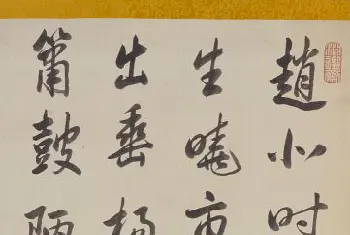 趙小时
生曉市
出垂楊
簫鼓陋